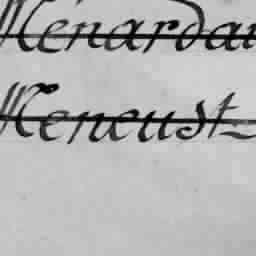 Ménardai
Meneust